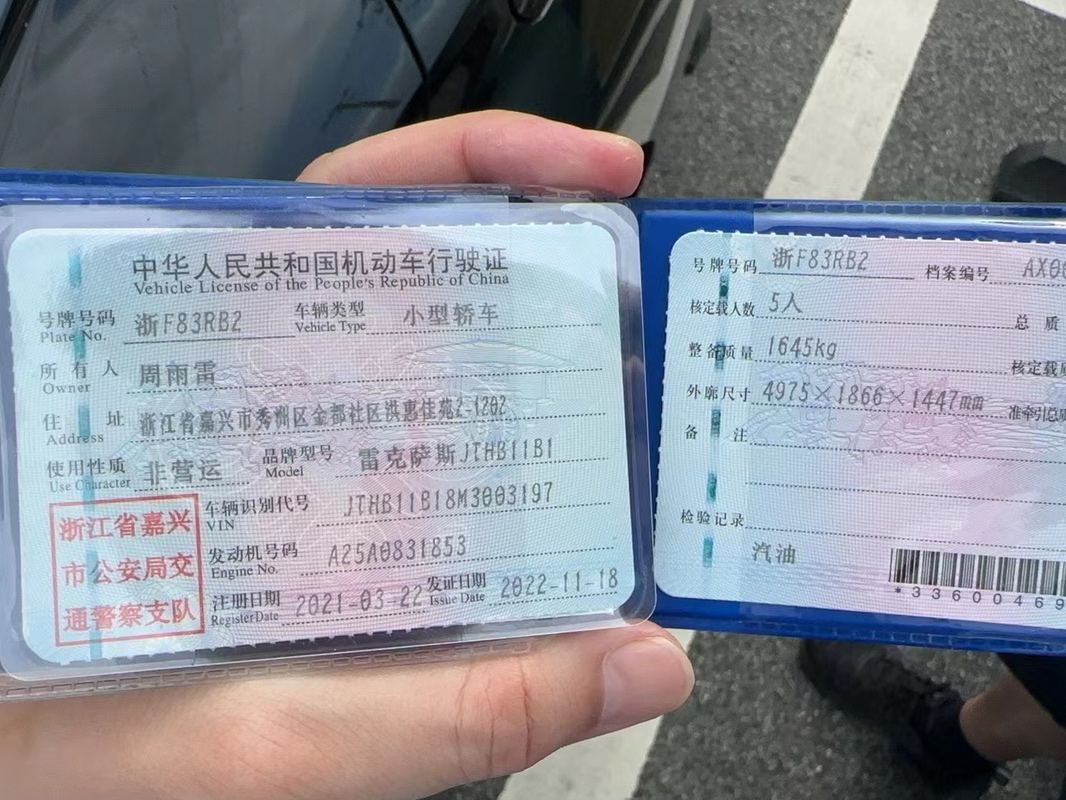 中华人民共和国机动车行驶证
Vehicle License of the People's Republic of China
号牌号码 浙F83RB2 车辆类型 小型轿车
Plate No. Vehicle Type
所有人 周雨雷
Owner
住址 浙江省嘉兴市秀洲区金都社区洪惠佳苑2-1202
Address
使用性质 非营运 品牌型号 雷克萨斯JTHB11B1
Use Character Model
浙江省嘉兴
市公安局交
通警察支队
车辆识别代号 JTHB11B18M3003197
VIN
发动机号码 A25A0831853
Engine No.
注册日期 2021-03-22 发证日期 2022-11-18
Register Date Issue Date
号牌号码 浙F83RB2 档案编号
核定载人数 5人 总质
整备质量 1645kg 核定载质
外廓尺寸 4975×1866×1447mm 准牵引总质
备注
检验记录
汽油
*33600469